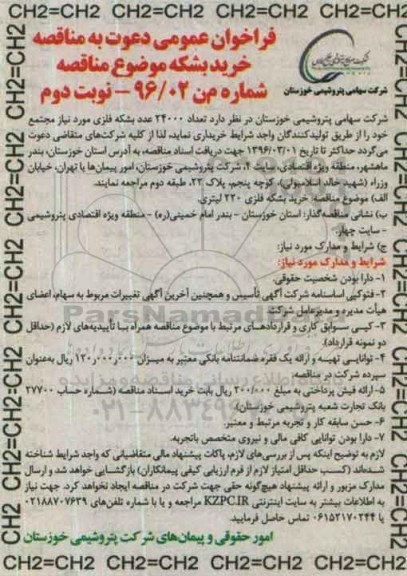 CH2=CH2 CH2=CH2 CH2=CH2 CH2=CH2 CH2=CH2
فراخوان عمومی دعوت به مناقصه
خرید بشکه موضوع مناقصه
شماره من ۹۶/۰۲ – نوبت دوم
شرکت سهامی پتروشیمی خوزستان
شرکت سهامی پتروشیمی خوزستان در نظر دارد تعداد ۲۴۰۰۰ عدد بشکه فلزی مورد نیاز مجتمع
خود را از طریق تولیدکنندگان واجد شرایط خریداری نماید، لذا از کلیه شرکت‌های متقاضی دعوت
می‌گردد حداکثر تا تاریخ ۱۳۹۶/۰۳/۰۱ جهت دریافت اسناد مناقصه، به آدرس استان خوزستان، بندر
ماهشهر، منطقه ویژه اقتصادی، سایت ۴، شرکت پتروشیمی خوزستان، امور پیمان‌ها یا تهران، خیابان
وزراء (شهید خالد اسلامبولی)، کوچه پنجم، پلاک ۲۲، طبقه دوم مراجعه نمایند.
الف) موضوع مناقصه: خرید بشکه فلزی ۲۲۰ لیتری.
ب) نشانی مناقصه‌گذار: استان خوزستان – بندر امام خمینی(ره) – منطقه ویژه اقتصادی پتروشیمی
– سایت چهار.
ج) شرایط و مدارک مورد نیاز:
شرایط و مدارک مورد نیاز:
۱- دارا بودن شخصیت حقوقی.
۲- فتوکپی اساسنامه شرکت آگهی تأسیس و همچنین آخرین آگهی تغییرات مربوط به سهام، اعضای
هیأت مدیره و مدیرعامل شرکت.
۳- کپی سوابق کاری و قراردادهای مرتبط با موضوع مناقصه همراه با تأییدیه‌های لازم (حداقل
دو نمونه قرارداد).
۴- توانایی تهیه و ارائه یک فقره ضمانتنامه بانکی معتبر به میزان ۱۲۰٫۰۰۰٫۰۰۰ ریال به‌عنوان
سپرده شرکت در مناقصه.
۵- ارائه فیش پرداختی به مبلغ ۳۰۰/۸۰۰ ریال بابت خرید اسناد مناقصه (شماره حساب ۲۷۷۰۰
بانک تجارت شعبه پتروشیمی خوزستان).
۶- حسن سابقه کار و تجربه مرتبط و معتبر.
۷- دارا بودن توانایی کافی مالی و نیروی متخصص باتجربه.
لازم به توضیح اینکه پس از بررسی‌های لازم، پاکات پیشنهاد مالی متقاضیانی که واجد شرایط شناخته
شده‌اند (کسب حداقل امتیاز لازم از فرم ارزیابی کیفی پیمانکاران) بازگشایی خواهد شد و ارسال
مدارک مزبور و ارائه پیشنهاد هیچ‌گونه حقی جهت شرکت در مناقصه ایجاد نخواهد کرد. جهت نیاز
به اطلاعات بیشتر به سایت اینترنتی KZPC.IR مراجعه و یا با شماره تلفن‌های ۰۲۱۸۸۷۰۷۶۳۹
یا ۰۶۱۵۲۱۷۰۲۴۴ تماس حاصل فرمایید.
امور حقوقی و پیمان‌های شرکت پتروشیمی خوزستان
CH2=CH2 CH2=CH2 CH2=CH2 CH2=CH2 CH2=CH2